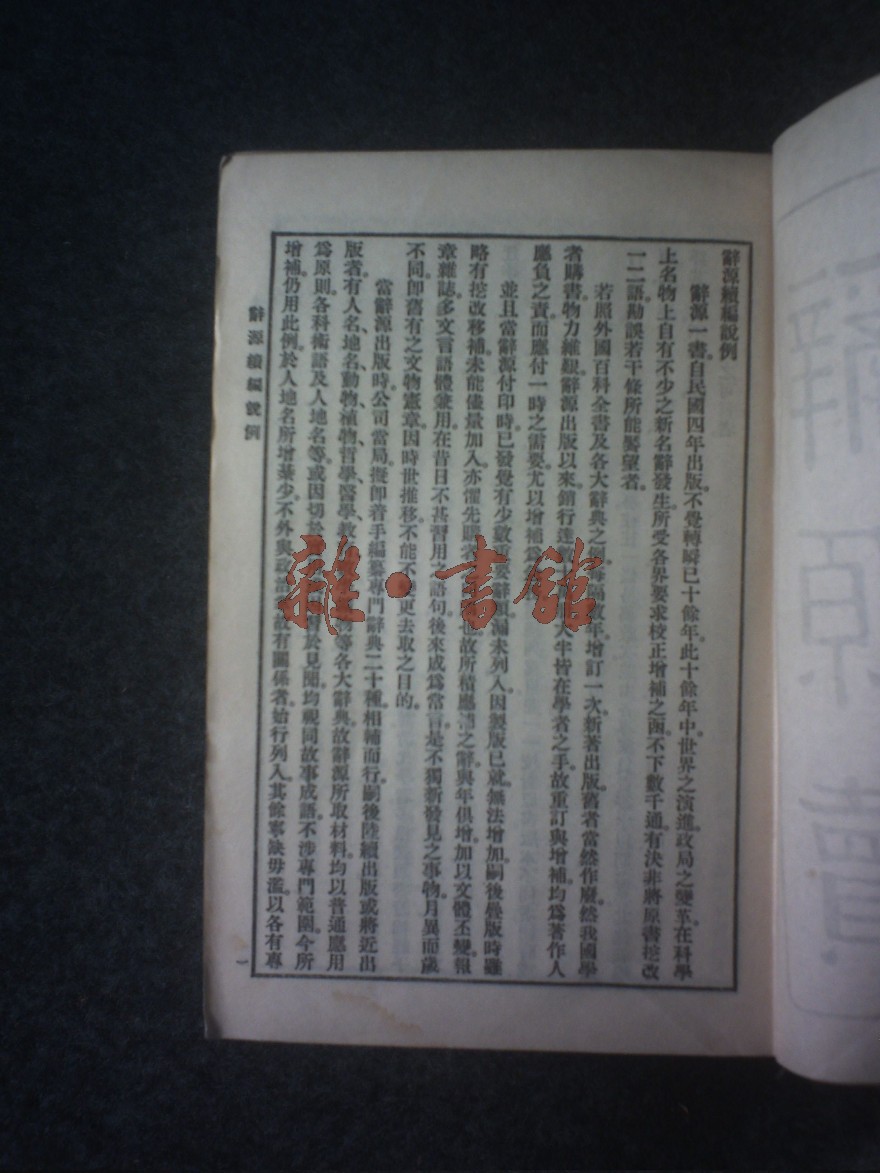 辭源續編說例
辭源一書。自民國四年出版。不覺轉瞬已十餘年。此十餘年中世界之演進。政局之變革。在科學
上名物上自有不少之新名辭發生。所受各界要求校正增補之函。不下數千通。有決非將原書挖改
一二語勘誤若干條所能饜望者。
若照外國百科全書及各大辭典之例。每隔數年增訂一次。新著出版。舊者當然作廢。然我國學
者購書物力維艱。辭源出版以來。銷行達數 大半皆在學者之手。故重訂與增補均爲著作人
應負之責。而應付一時之需要。尤以增補爲
並且當辭源付印時。已發覺有少數重要辭 漏未列入。因製版已就。無法增加。嗣後疊版時雖
略有挖改移補。未能儘量加入。亦懼先購者 也。故所積應 之辭。與年俱增。加以文體丕變。報
章雜誌。多文言語體兼用。在昔日不甚習用之語句。後來成爲常言。是不獨新發見之事物月異而歲
不同。卽舊有之文物憲章。因時世推移。不能不 更去取之目的。
當辭源出版時。公司當局。擬卽着手編纂專門辭典二十種。相輔而行。嗣後陸續出版或將近出
版者。有人名、地名、動物、植物、哲學、醫學、教 等各大辭典。故辭源所取材料。均以普通應用
爲原則。各科術語及人地名等。或因切於 於見聞。均視同故事成語。不涉專門範圍。今所
增補。仍用此例。於人地名所增綦少。不外與政治 故有關係者。始行列入。其餘寧缺毋濫。以各有專
辭源續編說例
一
雜·書館
辭源續